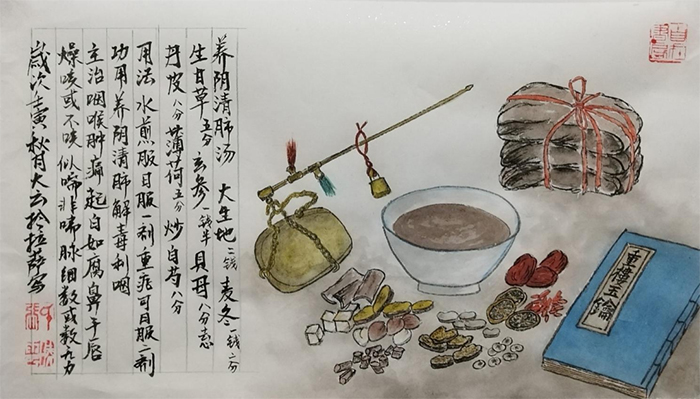 养阴清肺汤 大生地二钱 麦冬一钱二分
生甘草五分 玄参一钱半 贝母八分
丹皮八分 薄荷五分 炒白芍八分
用法 水煎服日服一剂重症可日服二剂
功用 养阴清肺解毒利咽
主治咽喉肿痛起白如腐鼻干唇
燥咳或不咳似喘非喘脉细数或数无力
岁次壬寅秋月大云於拉萨写
重樓玉鑰